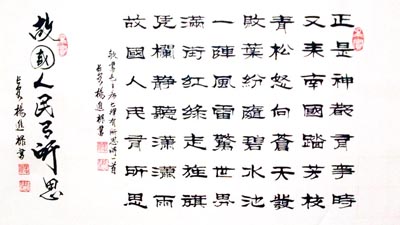 正是神都有事時
又来南國踏芳枝
青松怒向蒼天發
敗葉紛隨碧水池
一陣風雷驚世界
滿街紅綠走旌旗
凭欄靜聽瀟瀟雨
故國人民有所思
故國人民有所思